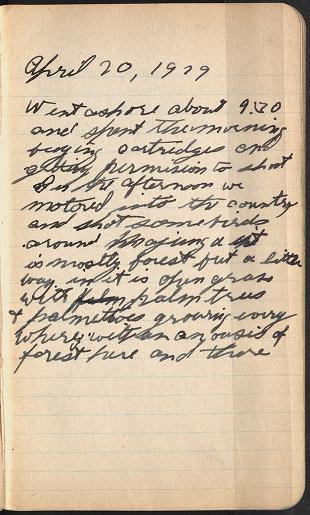 April 20, 1929
Went ashore about 9:30
and spent the morning
buying cartridges and
getting permission to shoot
In the afternoon we
motored into the country
and shot some birds
around it
is mostly forest but a little
way in it is open grass
with palm trees
& palmettoes growing every
where with an oasis of
forest here and there